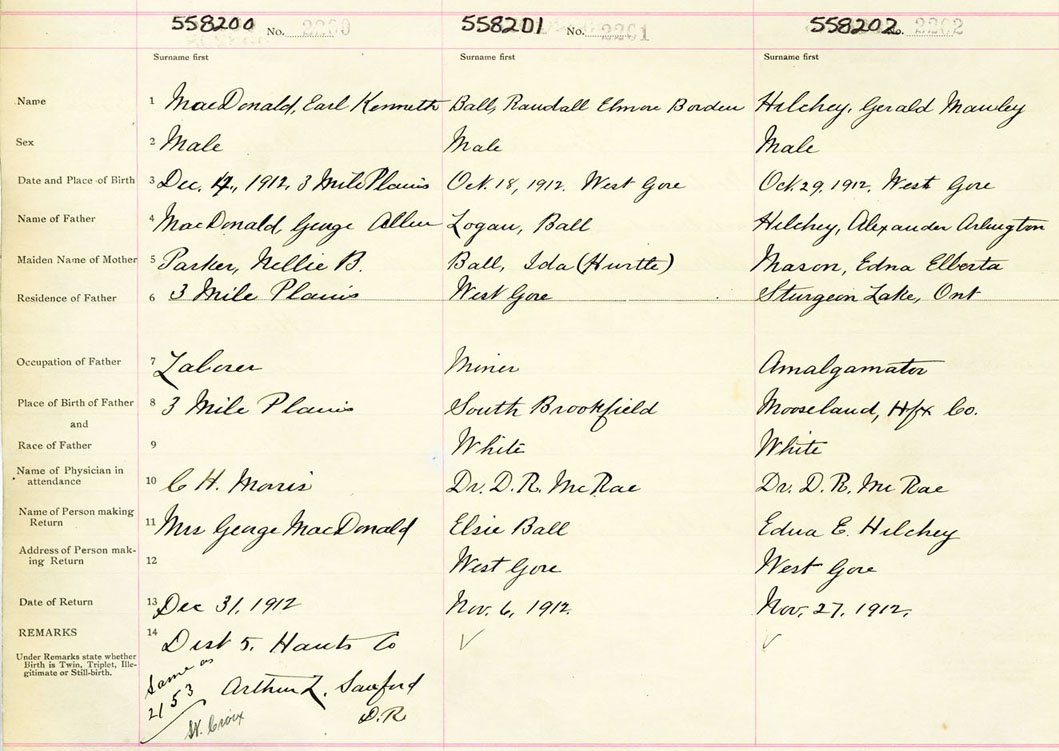 558200 No. 2260 558201 No. 2261 558202 No. 2262
Surname first Surname first Surname first
Name 1 MacDonald, Earl Kenneth Ball, Randall Elmore Borden Hilchey, Gerald Mawley
Sex 2 Male Male Male
Date and Place of Birth 3 Dec. 4, 1912, 3 Mile Plains Oct. 18, 1912. West Gore Oct. 29, 1912, West Gore
Name of Father 4 MacDonald, George Allen Logan, Ball Hilchey, Alexander Arlington
Maiden Name of Mother 5 Parker, Nellie B. Ball, Ida (Hurtle) Mason, Edna Elberta
Residence of Father 6 3 Mile Plains West Gore Sturgeon Lake, Ont
Occupation of Father 7 Laborer Miner Amalgamator
Place of Birth of Father 8 3 Mile Plains South Brookfield Mooseland, Hfx Co.
and
Race of Father 9 White White
Name of Physician in
attendance 10 C H. Morris Dr. D. R. McRae Dr. D. R. McRae
Name of Person making
Return 11 Mrs George MacDonald Elsie Ball Edna E. Hilchey
Address of Person mak-
ing Return 12 West Gore West Gore
Date of Return 13 Dec 31, 1912 Nov. 6, 1912. Nov. 27, 1912.
REMARKS 14 Dist 5. Hants Co
Under Remarks state whether
Birth is Twin, Triplet, Ille-
gitimate or Still-birth.
Same as
2153
Arthur L. Sanford
D.R
St. Croix